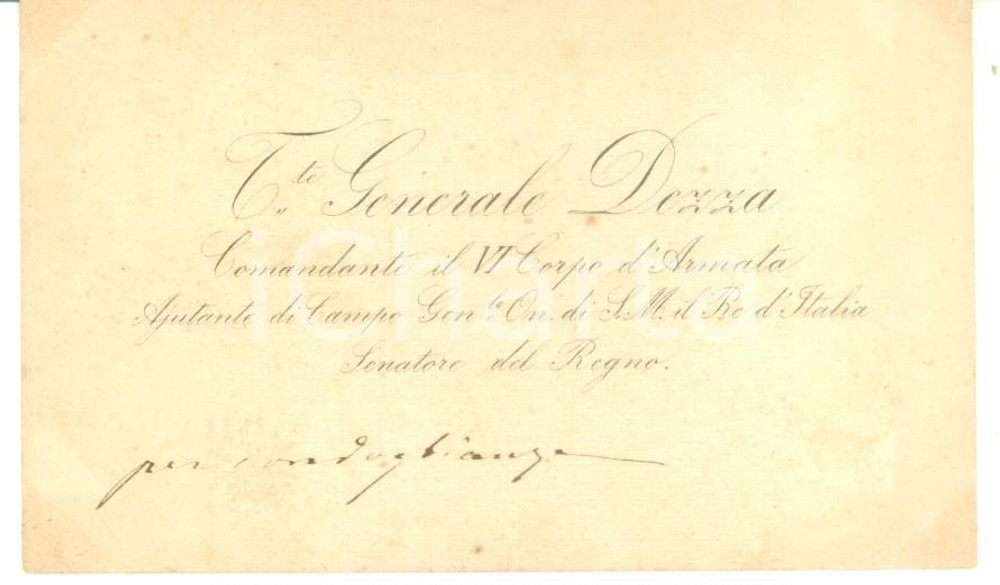 T.te Generale Dezza
Comandante il VI Corpo d'Armata
Ajutante di Campo Gen.le On. di S. M. il Re d'Italia
Senatore del Regno.
per condoglianze
iCharta